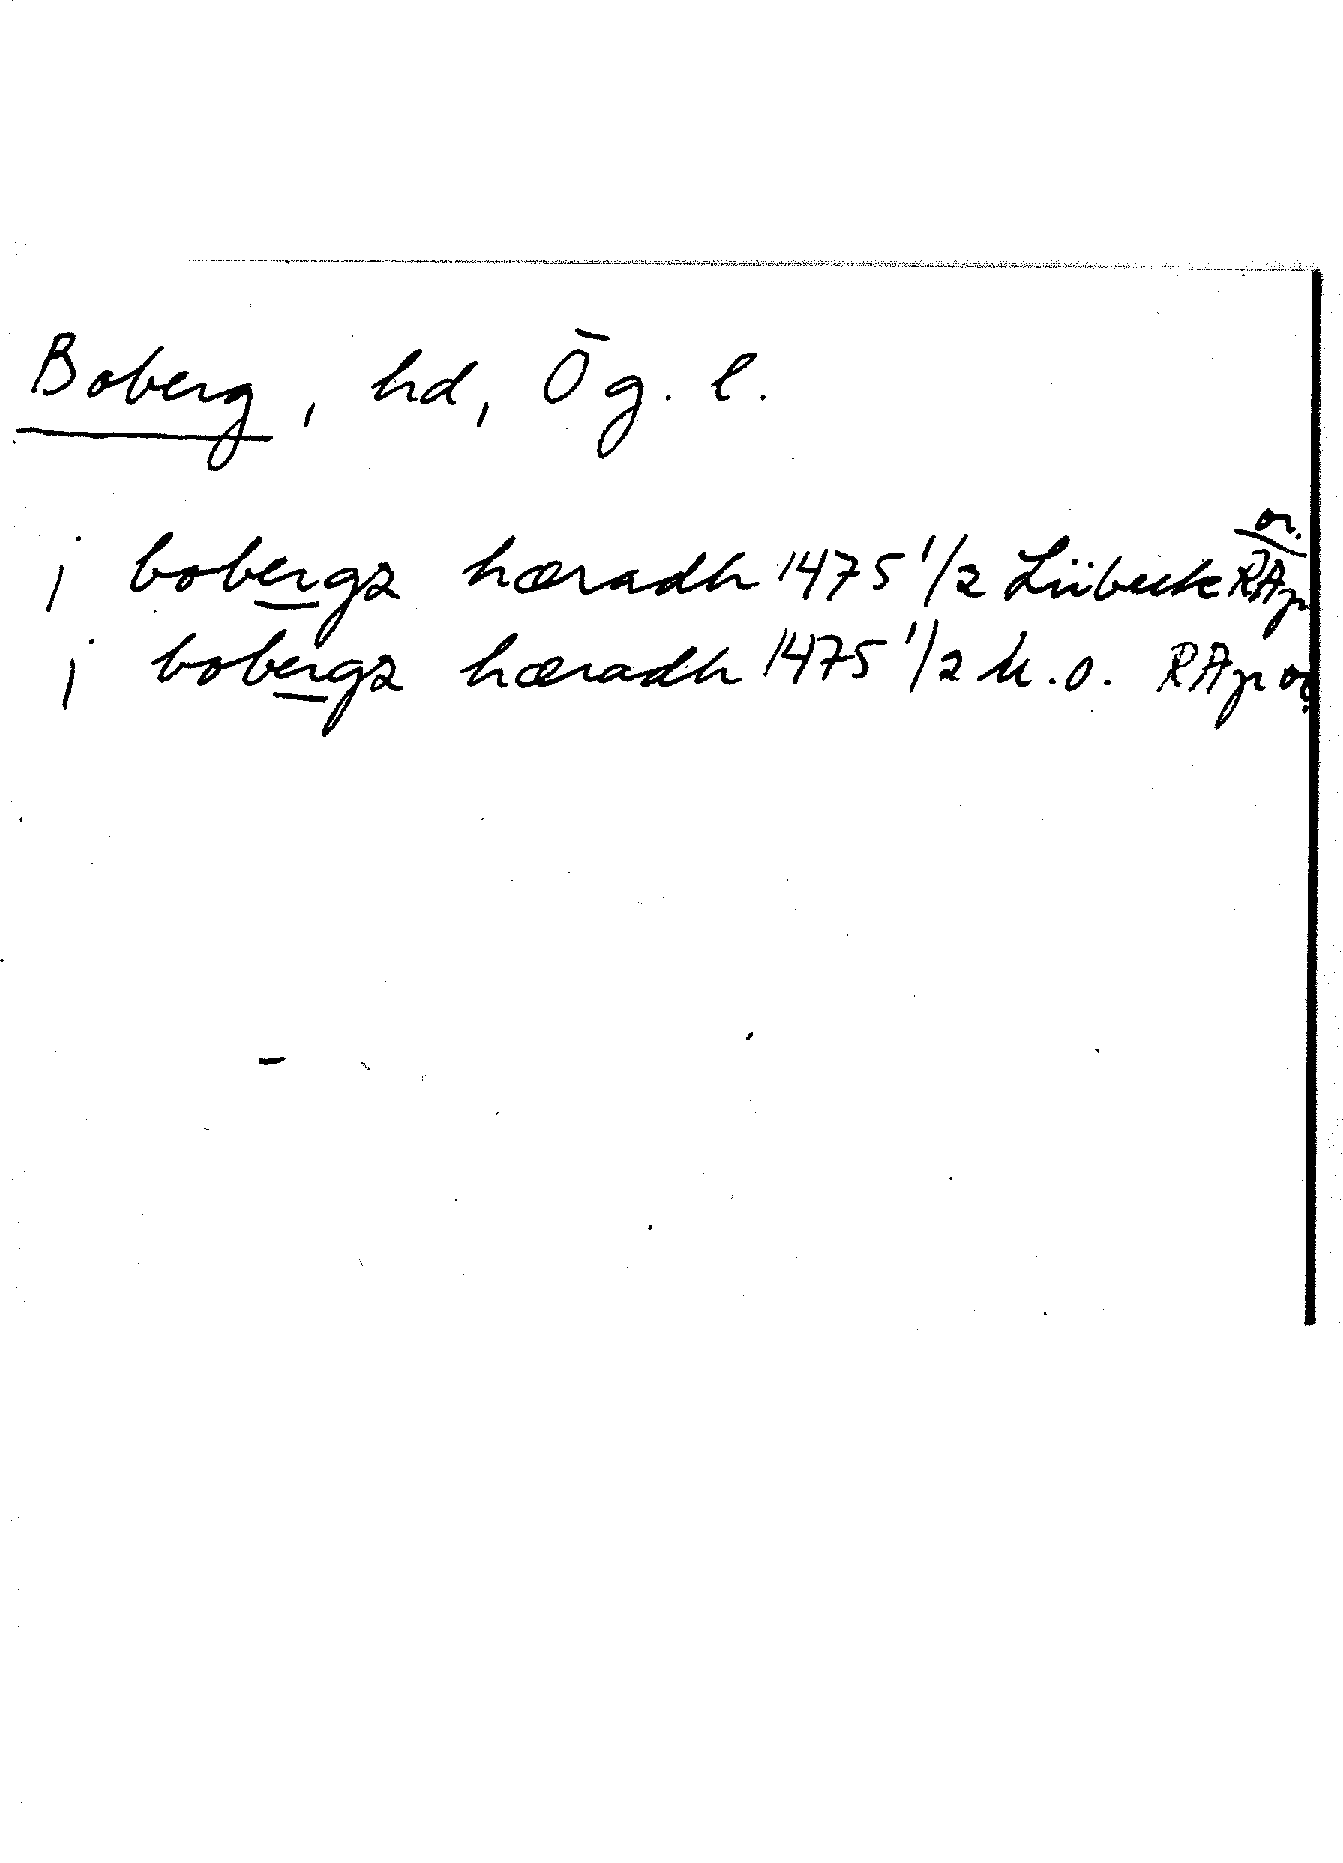 Boberg, hd, Ög. l.
j bobergz hæradh 1475 1/2 Lübeck RAp or.
j bobergz hæradh 1475 1/2 u.o. RAp or.